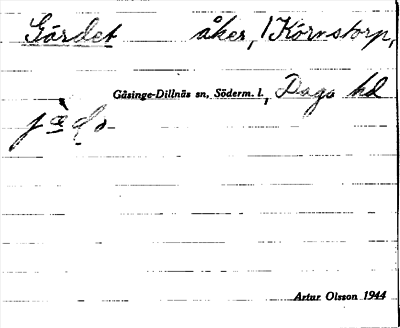 Gärdet åker, 1 Kornstorp,
Gåsinge-Dillnäs sn, Söderm. l., Daga hd
Artur Olsson 1944